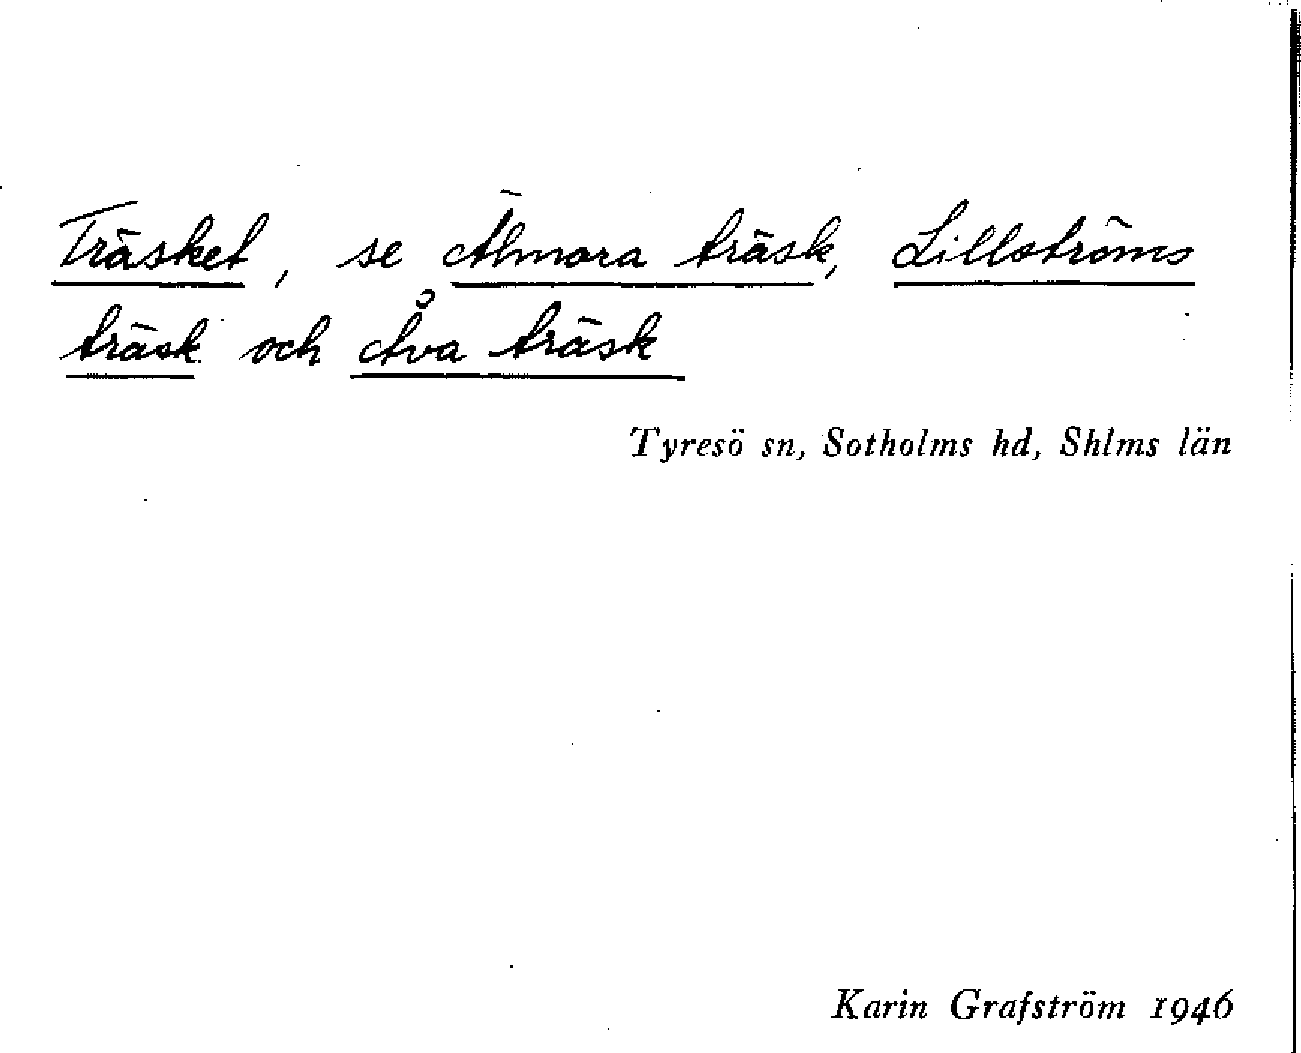 Träsket, se Älmora träsk, Lillströms
träsk och Åva träsk
Tyresö sn, Sotholms hd, Shlms län
Karin Grafström 1946